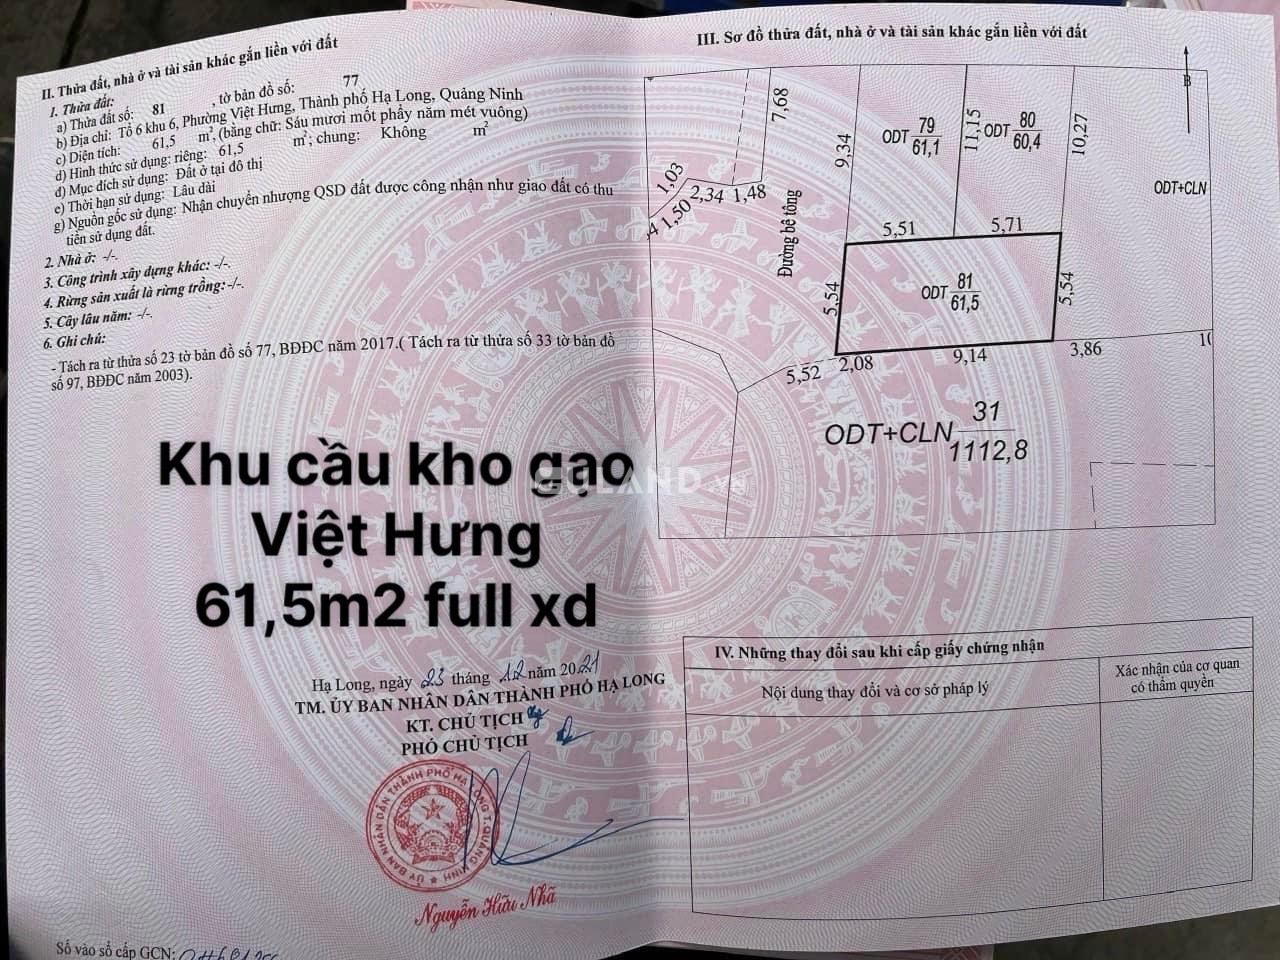 II. Thửa đất, nhà ở và tài sản khác gắn liền với đất
1. Thửa đất:
a) Thửa đất số: 81 , tờ bản đồ số: 77
b) Địa chỉ: Tổ 6 khu 6, Phường Việt Hưng, Thành phố Hạ Long, Quảng Ninh
c) Diện tích: 61,5 m², (bằng chữ: Sáu mươi mốt phẩy năm mét vuông)
d) Hình thức sử dụng: riêng: 61,5 m²; chung: Không m²
đ) Mục đích sử dụng: Đất ở tại đô thị
e) Thời hạn sử dụng: Lâu dài
g) Nguồn gốc sử dụng: Nhận chuyển nhượng QSD đất được công nhận như giao đất có thu
tiền sử dụng đất.
2. Nhà ở: -/-.
3. Công trình xây dựng khác: -/-.
4. Rừng sản xuất là rừng trồng: -/-.
5. Cây lâu năm: -/-.
6. Ghi chú:
- Tách ra từ thửa số 23 tờ bản đồ số 77, BĐĐC năm 2017.( Tách ra từ thửa số 33 tờ bản đồ
số 97, BĐĐC năm 2003).
Khu cầu kho gạo
Việt Hưng
61,5m2 full xd
Hạ Long, ngày 23 tháng 12 năm 2021
TM. ỦY BAN NHÂN DÂN THÀNH PHỐ HẠ LONG
KT. CHỦ TỊCH
PHÓ CHỦ TỊCH
ỦY BAN NHÂN DÂN THÀNH PHỐ HẠ LONG T. QUẢNG NINH
Nguyễn Hữu Nhã
Số vào sổ cấp GCN:
III. Sơ đồ thửa đất, nhà ở và tài sản khác gắn liền với đất
B
7,68
9,34
ODT 79
61,1
11,15
ODT 80
60,4
10,27
ODT+CLN
1,03
2,34
1,48
1,50
Đường bê tông
5,51
5,71
5,54
ODT 81
61,5
5,54
5,52
2,08
9,14
3,86
ODT+CLN 31
1112,8
GULAND.vn
IV. Những thay đổi sau khi cấp giấy chứng nhận
Nội dung thay đổi và cơ sở pháp lý
Xác nhận của cơ quan
có thẩm quyền